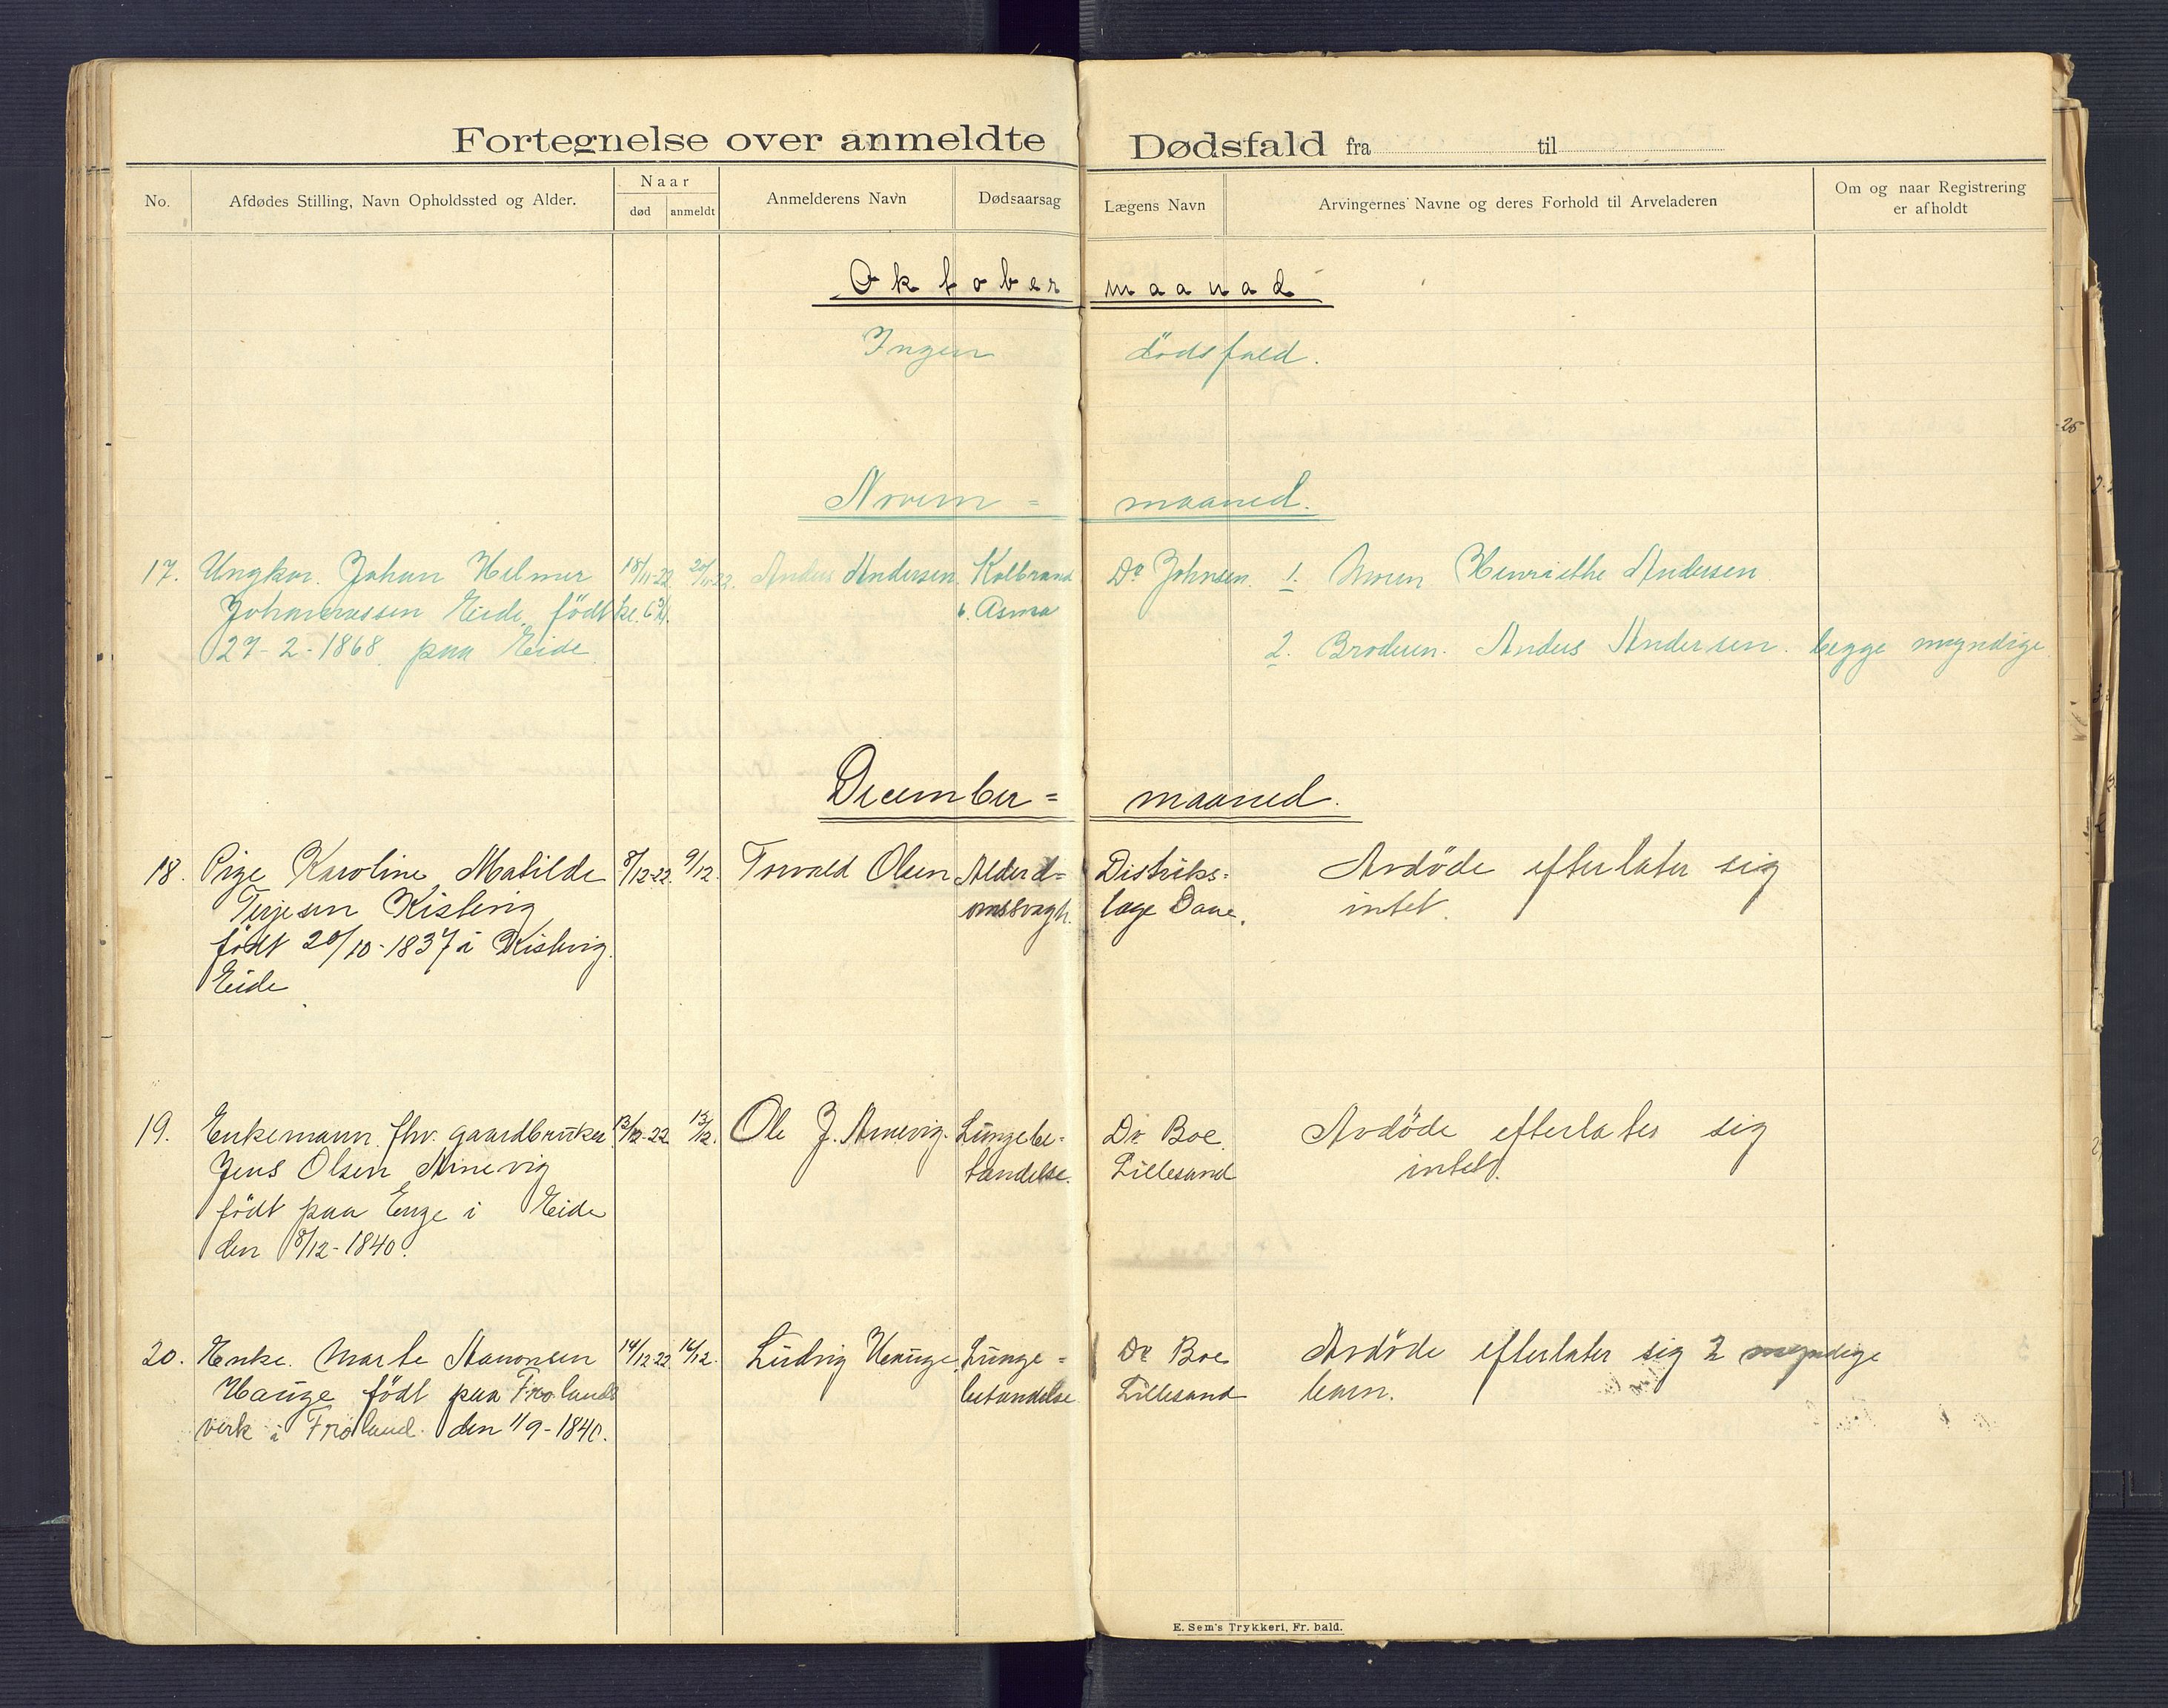 Fortegnelse over anmeldte Dødsfald fra til
No.
Afdødes Stilling, Navn Opholdssted og Alder.
Naar
død
anmeldt
Anmelderens Navn
Dødsaarsag
Lægens Navn
Arvingernes Navne og deres Forhold til Arveladeren
Om og naar Registrering
er afholdt
Oktober maanad
Ingen dödsfald.
Novem = maaned.
17. Ungkar. Johan Hilmer 18/11-22 20/11-22. Anders Andersen. Kolbrand Dr Johnsen. 1. Moren Henriethe Andersen
Johannessen Eide, födt kl. 6 Asma
27-2-1868 paa Eide 2. Broderen. Anders Andersen. begge myndige
December = maaned.
18. Pige Karoline Matilde 8/12-22. 9/12. Torvald Olsen Alderd= Distriks= Avdöde efterlater sig
Terjesen Kistevig omssvagh. læge Daae. intet.
födt 20/10-1837 i Kistevig.
Eide
19. Enkemann. fhv. gaardbruker 12/12-22 13/12. Ole J. Arnevig. Lungebe= Dr Boe Avdöde efterlates sig
Jens Olsen Arnevig tændelse. Lillesand intet.
födt paa Enge i Eide
den 8/12-1840.
20. Enke. Marte Aanonsen 14/12 22 16/12. Ludvig Hauge. Lunge= Dr Boe Avdöde efterlater sig 2 myndige
Hauge födt paa Frolands betændelse Lillesand barn.
verk i Froland. den 1/9-1840.
E. Sem's Trykkeri, Fr. hald.